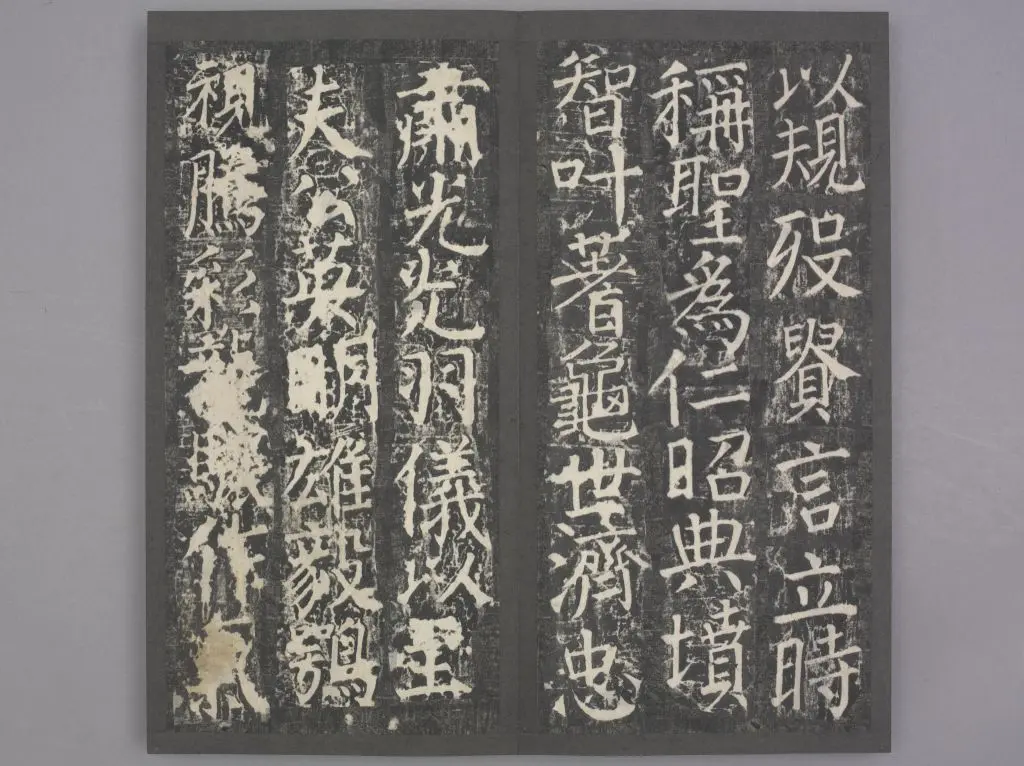 以規歿賢言立時
稱聖爲仁昭典墳
智叶著龜世濟忠
肅光光羽儀以
夫公英明雄毅鶚
視騰彩龍驤作